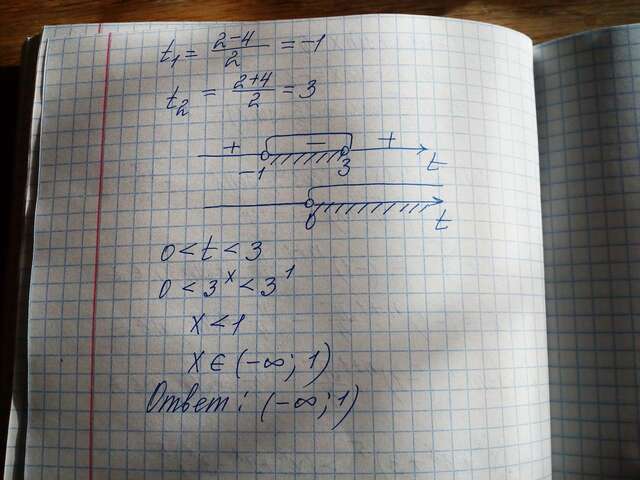 t₁ = (2-4)/2 = -1
t₂ = (2+4)/2 = 3
+ - +
-1 3 t
0 t
0 < t < 3
0 < 3ˣ < 3¹
x < 1
x ∈ (-∞; 1)
Ответ: (-∞; 1)